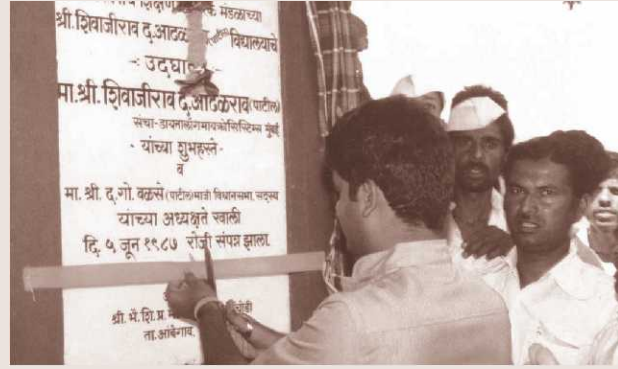 शिक्षण मंडळाच्या
श्री.शिवाजीराव द.आढळ विद्यालयाचे
-: उदघा
मा.श्री. शिवाजीराव द.आढळराव (पाटील)
संचा-डायनालॉगमायक्रोसिस्टिम्स मुंबई
- यांच्या शुभहस्ते -
व
मा. श्री. द.गो. वळसे (पाटील) माजी विधानसभा सदस्य
यांच्या अध्यक्षते खाली
दि. ५ जून १९८७ रोजी संपन्न झाला.
श्री. भै. शि. प्र.
ता. आंबेगाव.